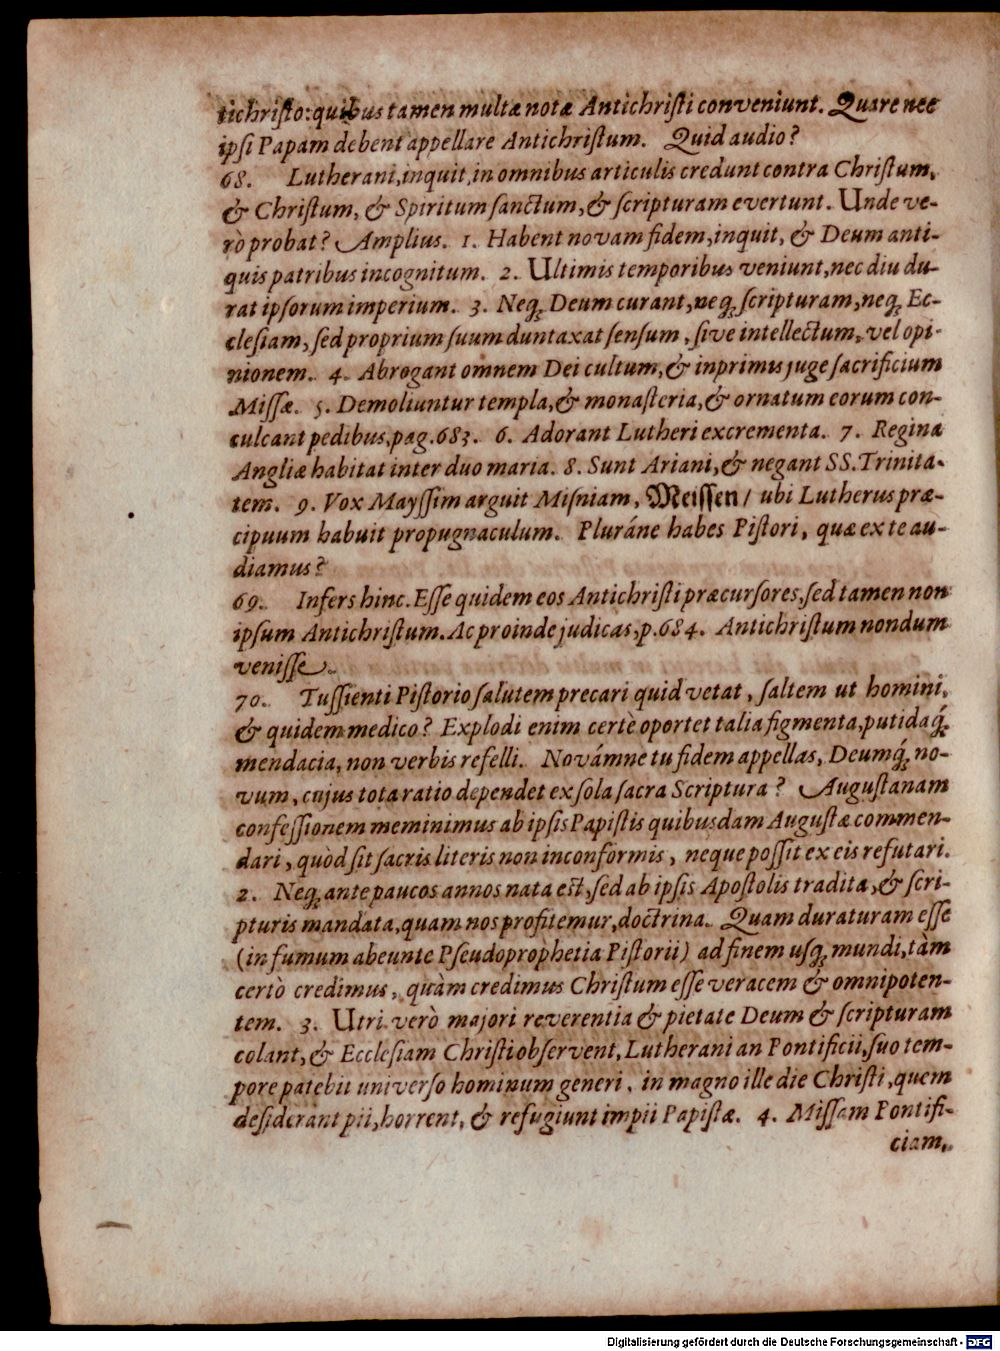 tichriſto: quibus tamen multæ notæ Antichriſti conveniunt. Quare nec
ipſi Papam debent appellare Antichriſtum. Quid audio?
68. Lutherani, inquit, in omnibus articulis credunt contra Chriſtum,
& Chriſtum, & Spiritum ſanctum, & ſcripturam evertunt. Unde ve-
rò probat? Amplius. 1. Habent novam fidem, inquit, & Deum anti-
quis patribus incognitum. 2. Ultimis temporibus veniunt, nec diu du-
rat ipſorum imperium. 3. Neq; Deum curant, neq; ſcripturam, neq; Ec-
cleſiam, ſed proprium ſuum duntaxat ſenſum, ſive intellectum, vel opi-
nionem. 4. Abrogant omnem Dei cultum, & inprimis juge ſacrificium
Miſſæ. 5. Demoliuntur templa, & monaſteria, & ornatum eorum con-
culcant pedibus, pag. 683. 6. Adorant Lutheri excrementa. 7. Regina
Angliæ habitat inter duo maria. 8. Sunt Ariani, & negant SS. Trinita-
tem. 9. Vox Mayſſim arguit Miſniam, Meiſſen/ ubi Lutherus præ-
cipuum habuit propugnaculum. Pluráne habes Piſtori, quæ ex te au-
diamus?
69. Infers hinc. Eſſe quidem eos Antichriſti præcurſores, ſed tamen non
ipſum Antichriſtum. Ac proinde judicas, p. 684. Antichriſtum nondum
veniſſe.
70. Tuſſienti Piſtorio ſalutem precari quid vetat, ſaltem ut homini,
& quidem medico? Explodi enim certè oportet talia figmenta, putidaq́;
mendacia, non verbis refelli. Novámne tu fidem appellas, Deumq́; no-
vum, cujus tota ratio dependet ex ſola ſacra Scriptura? Auguſtanam
confeſſionem meminimus ab ipſis Papiſtis quibusdam Auguſtæ commen-
dari, quòd ſit ſacris literis non inconformis, neque poſſit ex eis refutari.
2. Neq; ante paucos annos nata eſt, ſed ab ipſis Apoſtolis tradita, & ſcri-
pturis mandata, quam nos profitemur, doctrina. Quam duraturam eſſe
(in fumum abeunte Pſeudoprophetia Piſtorii) ad finem uſq; mundi, tàm
certò credimus, quàm credimus Chriſtum eſſe veracem & omnipoten-
tem. 3. Utri verò majori reverentia & pietate Deum & ſcripturam
colant, & Eccleſiam Chriſti obſervent, Lutherani an Pontificii, ſuo tem-
pore patebit univerſo hominum generi, in magno ille die Chriſti, quem
deſiderant pii, horrent, & refugiunt impii Papiſtæ. 4. Miſſam Pontifi-
ciam,
Digitalisierung gefördert durch die Deutsche Forschungsgemeinschaft - DFG